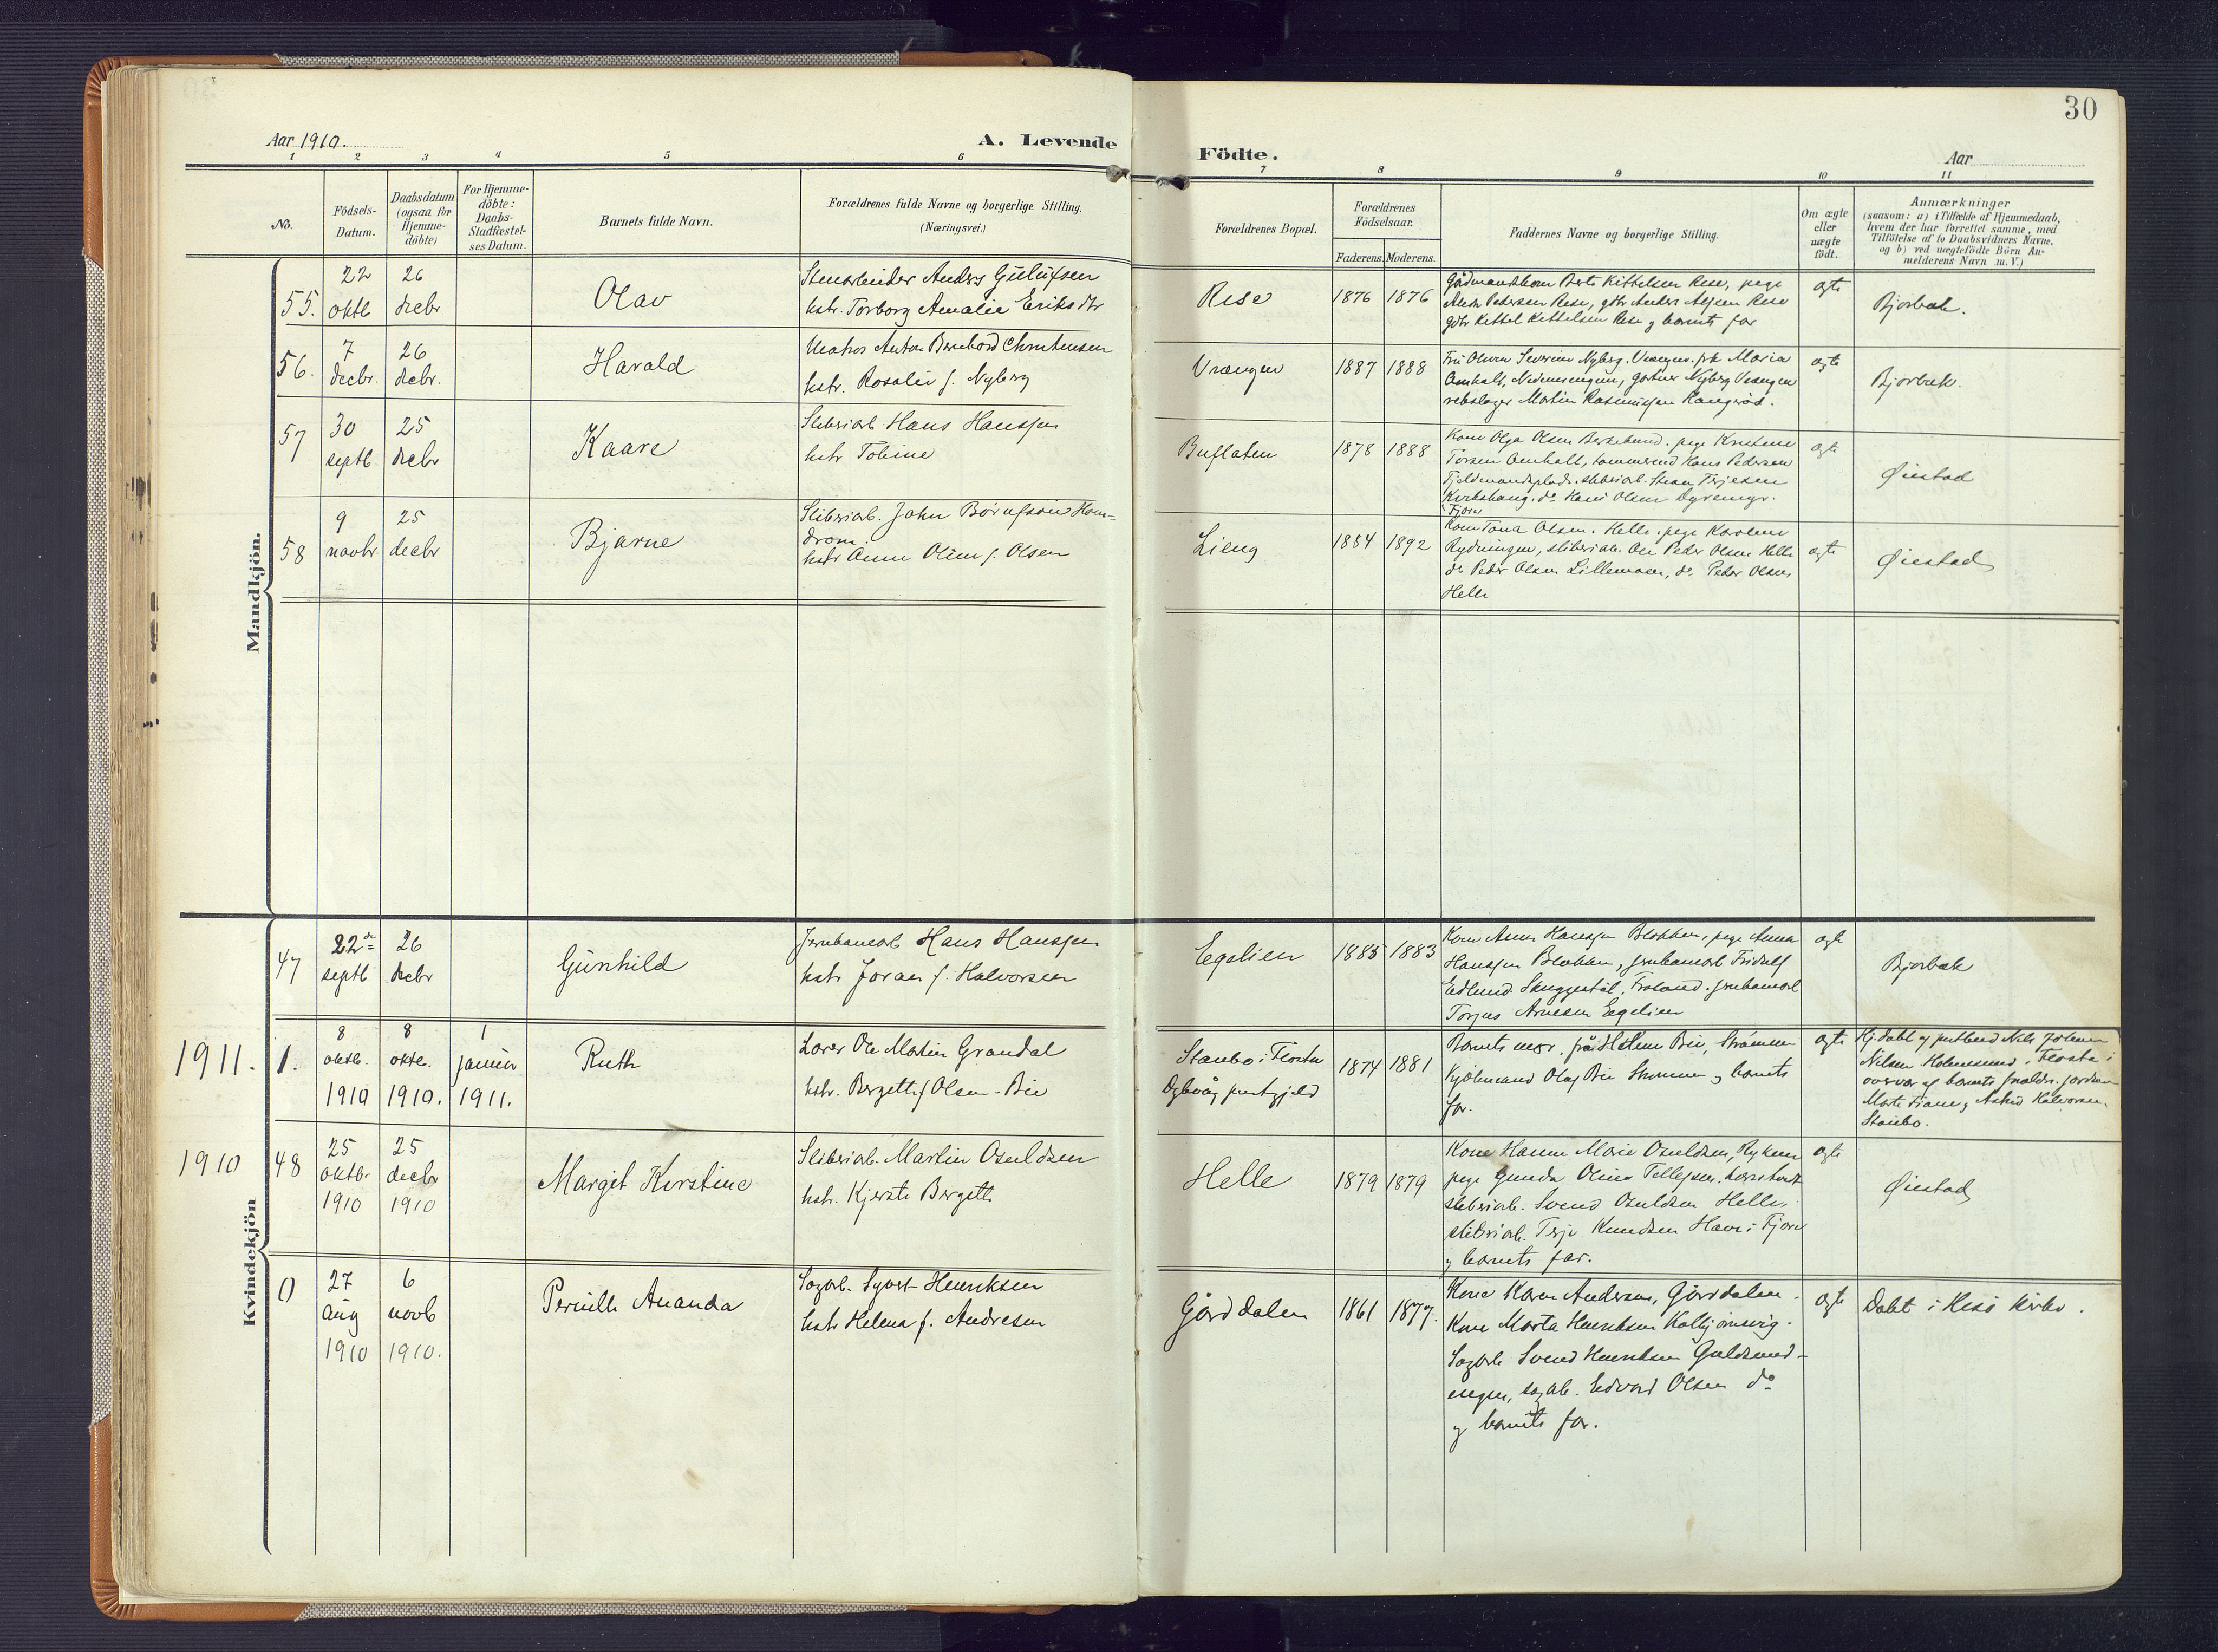 30
Aar 1910.
A. Levende
Födte.
Aar
1 2 3 4 5 6
7 8 9 10 11
No.
Födsels-
Datum.
Daabsdatum
(ogsaa for
Hjemme-
døbte)
For Hjemme-
døbte:
Daabs-
Stadfæstel-
ses Datum.
Barnets fulde Navn.
Forældrenes fulde Navne og borgerlige Stilling.
(Næringsvei.)
Forældrenes Bopæl.
Forældrenes
Födselsaar.
Faderens. Moderens.
Faddernes Navne og borgerlige Stilling.
Om ægte
eller
uægte
födt.
Anmærkninger
(saasom: a) i Tilfælde af Hjemmedaab,
hvem der har forrettet samme, med
Tilföielse af to Daabsvidners Navne,
og b) ved uægtefödte Börn An-
melderens Navn m. V.)
Mandkjön.
55.
22
oktb
26
decbr
Olav
Stenarbeider Anders Gulufsen
hstr. Torborg Amalie Eriksdtr
Rise
1876 1876
Pedersen Rese, gbr Anders Alfsen Rese
gbr Kittel Kittelsen Rese og barnets far
ægte
Bjorbæk.
56.
7
decbr.
26
decbr.
Harald
Matros Anton Bernhard Christensen
hstr. Rosalie f. Nyberg
Vrængen
1887 1888
Fru Olivia Severine Nyberg, Vrængen. frk Maria
Omholt, Nedenesengen, gartner Nyberg Vrængen
rebslager Martin Rasmussen Langerød.
ægte
Bjorbæk.
57
30
septb.
25
decbr
Kaare
Sliberiarb. Hans Hanssen
hstr Tobine
Buflaten
1878 1888
Kone Olga Olsen pege Kristine
Torsen Omholt, tømmermd Hans Pedersen
Fjeldmandsplads. sliberiarb. Terjesen
Kirkehaug. do Hans Olsen Dyremyr.
ægte
Øiestad
58
9
novbr
25
decbr
Bjarne
Sliberiarb. John Börufsen Hom-
drom.
hstr Anne Oline f. Olsen
Lieng
1884 1892
Fjære
Kone Tona Olsen. Helle. pege Karoline
Rydningen, sliberiarb. Ole Peder Olsen Helle
do Peder Olsen Lillemoen, do. Peder Olsen
Helle
ægte
Øiestad
Kvindekjön
47
22de
septb
26
decbr
Gunhild
Jernbanearb Hans Hanssen
hstr Joran f. Halvorsen
Egelien
1885 1883
Kone Anne Hanssen Blokken, pege Anna
Hanssen Blokken, jernbanearb Fridulf
Edlund Skuggestöl, Froland. jernbanearb
Torjus Arnesen Egelien
ægte
Bjorbæk
1911. 1.
8
oktb.
1910
8
oktb.
1910.
1
januar
1911.
Ruth
Lærer Ole Martin Grandal
hstr. Bergette f Olsen-Bie
Staubo i Flosta
Dybvåg prestgjeld
1874 1881
Barnets mor. frk Helene Bie, Strømmen
Kjöbmand Olaf Bie Strømmen og barnets
far.
ægte
Hj.døbt af Nils
Nilsen Holmesund i Flosta i
overvær af barnets forældre. jordmor
Marte Fiane og Astrid Halvorsen,
Staubo.
1910 48
25
oktbr
1910
25
decbr
1910
Margit Kirstine
Sliberiarb. Martin Osuldsen
hstr. Kjerste Bergette
Helle
1879 1879
Kone Hanne Marie Osuldsen, Rykene
pege Gunda Oline Tellefsen,
sliberiarb. Svend Osuldsen Helle,
sliberiarb. Terje Knudsen Have i Fjære
og barnets far.
ægte
Øiestad
0
27
aug
1910
6
novb
1910.
Pernille Ananda
Sagarb. Syvert Henriksen
hstr Helena f. Andresen
Gårddalen
1861 1877.
Kone Karen Andersen, Gårddalen.
Kone Marta Henriksen Kolbjörnsvig.
Sagarb Svend Henriksen Guldsmed-
engen, sagarb. Edvard Olsen do
og barnets far.
ægte
Døbt i Hisö kirke.